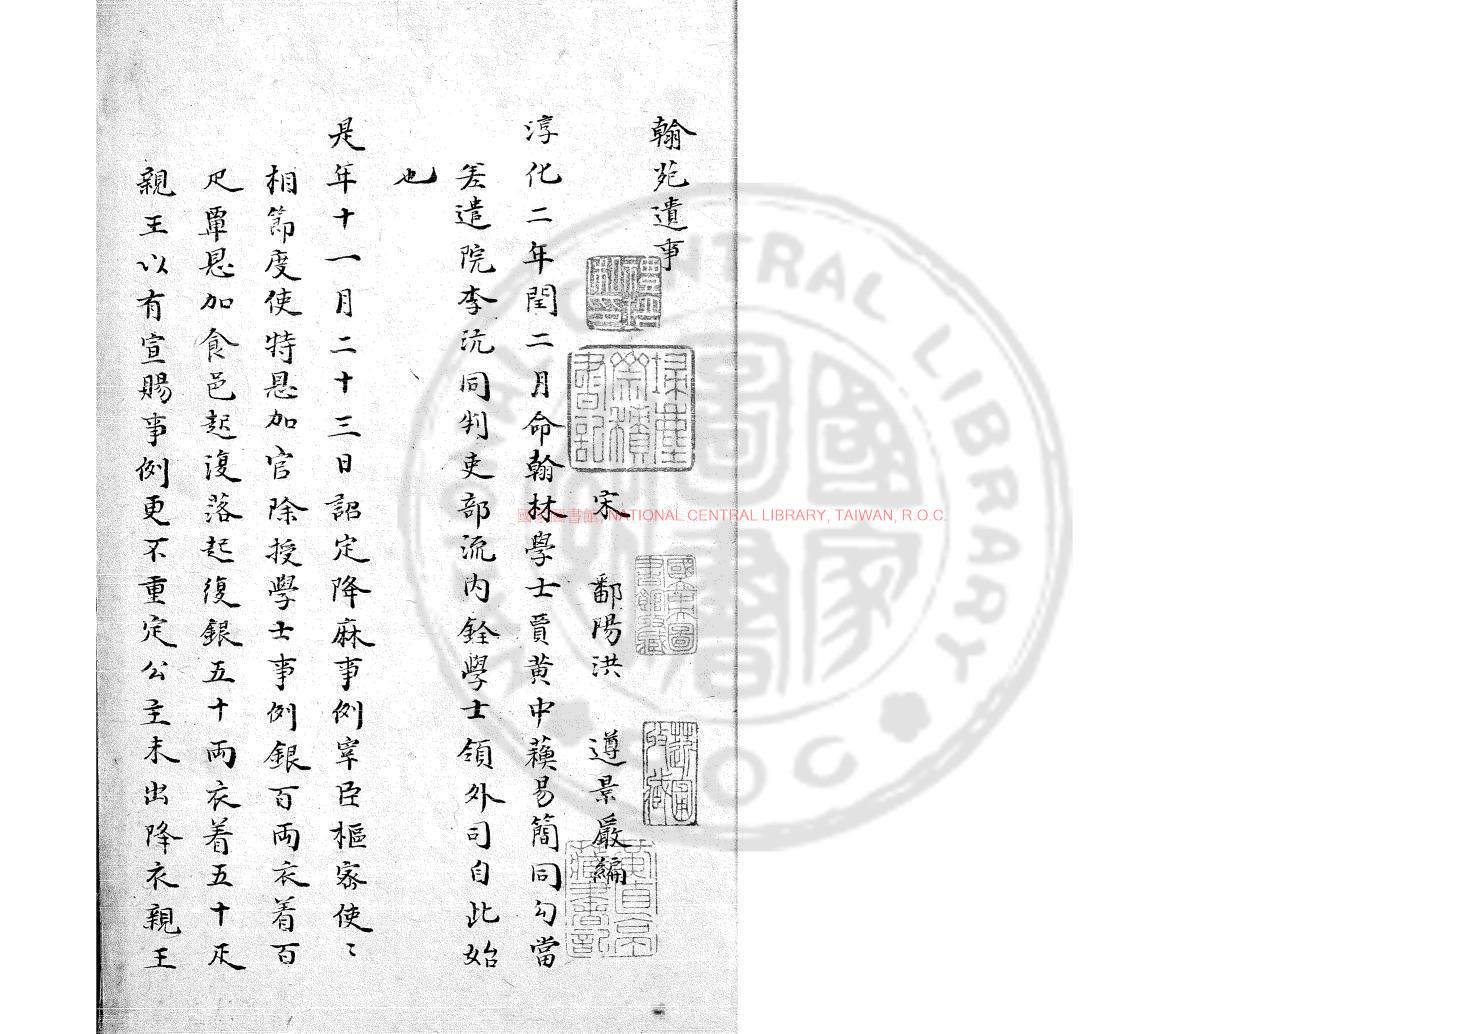 翰苑遺事
宋 鄱陽洪 遵景嚴編
淳化二年閏二月命翰林學士賈黃中蘇易簡同勾當
差遣院李沆同判吏部流內銓學士領外司自此始
也
是年十一月二十三日詔定降麻事例宰臣樞密使〻
相節度使特恩加官除授學士事例銀百兩衣着百
疋覃恩加食邑起復落起復銀五十兩衣着五十疋
親王以有宣賜事例更不重定公主未出降衣親王
國家圖書館, NATIONAL CENTRAL LIBRARY, TAIWAN, R.O.C.
NATIONAL CENTRAL LIBRARY
掃葉山房藏書記
國立中央圖書館收藏